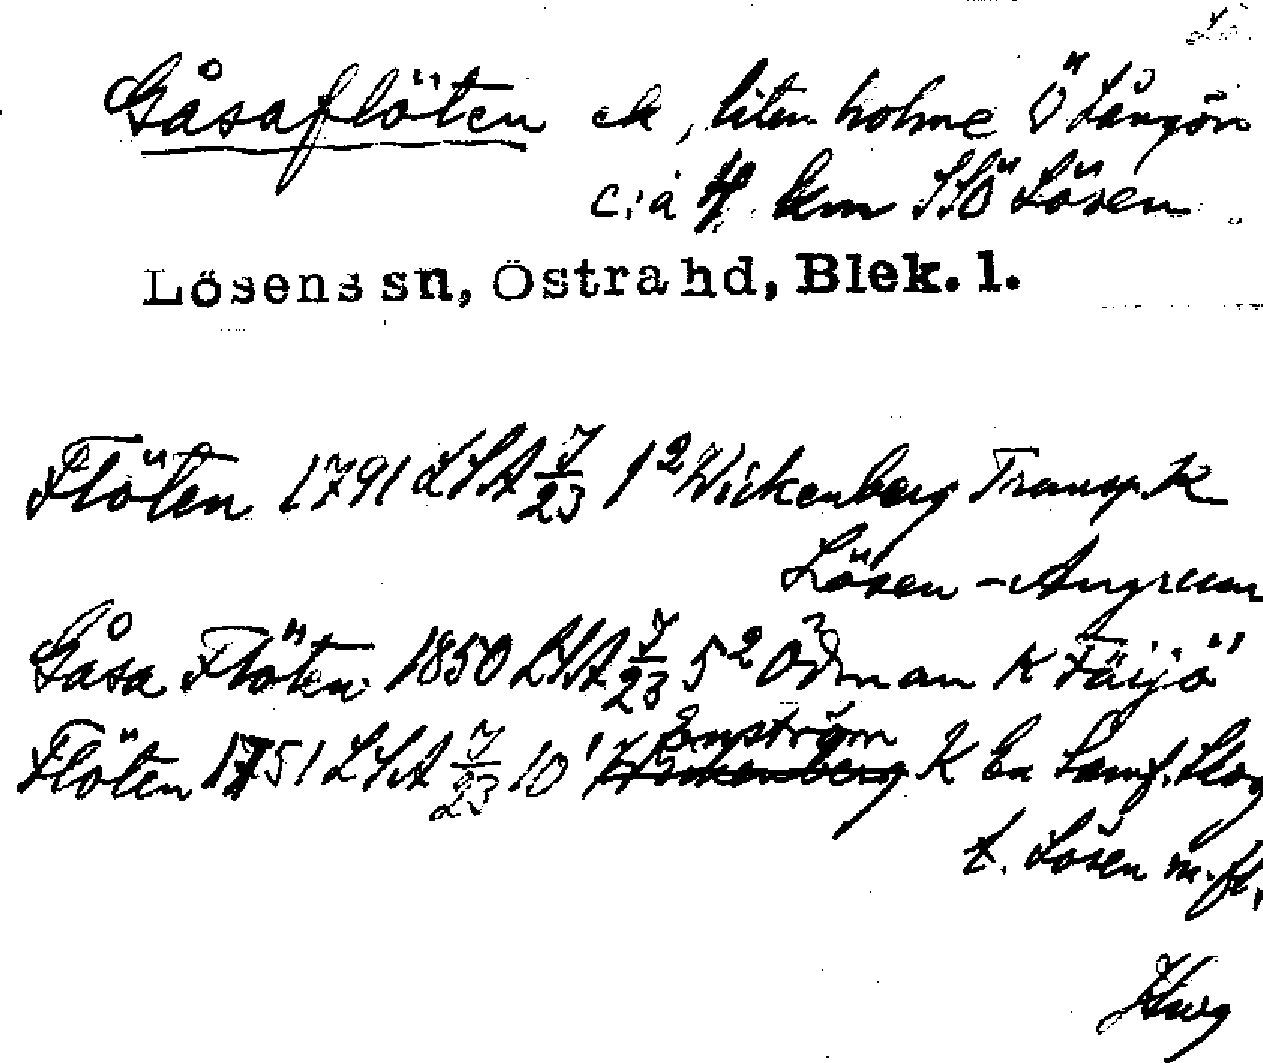 Gåsaflöten ek, liten holme Ö Långön
c:a 4 km SSÖ Lösen
Lösens sn, Östra hd, Blek. l.
Flöten 1791 LSA 7/23 1² Wickenberg Transp. K
Lösen - Angreum
Gåsa Flöten 1850 LSA 7/23 5² Ödman K Fäijö
Flöten 1751 LSA 7/23 10¹ Enström K En Samf. Skog
t. Lösen m.fl.